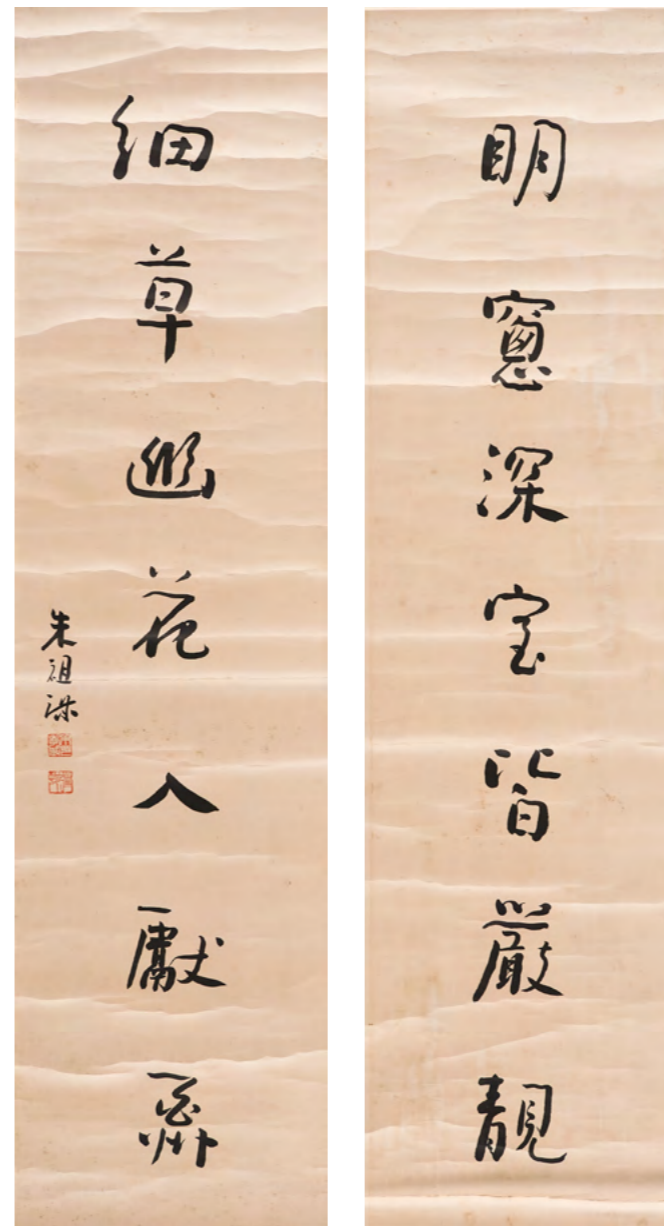 眀窻深室皆嚴靚
細草幽花入獻酬
朱祖謀